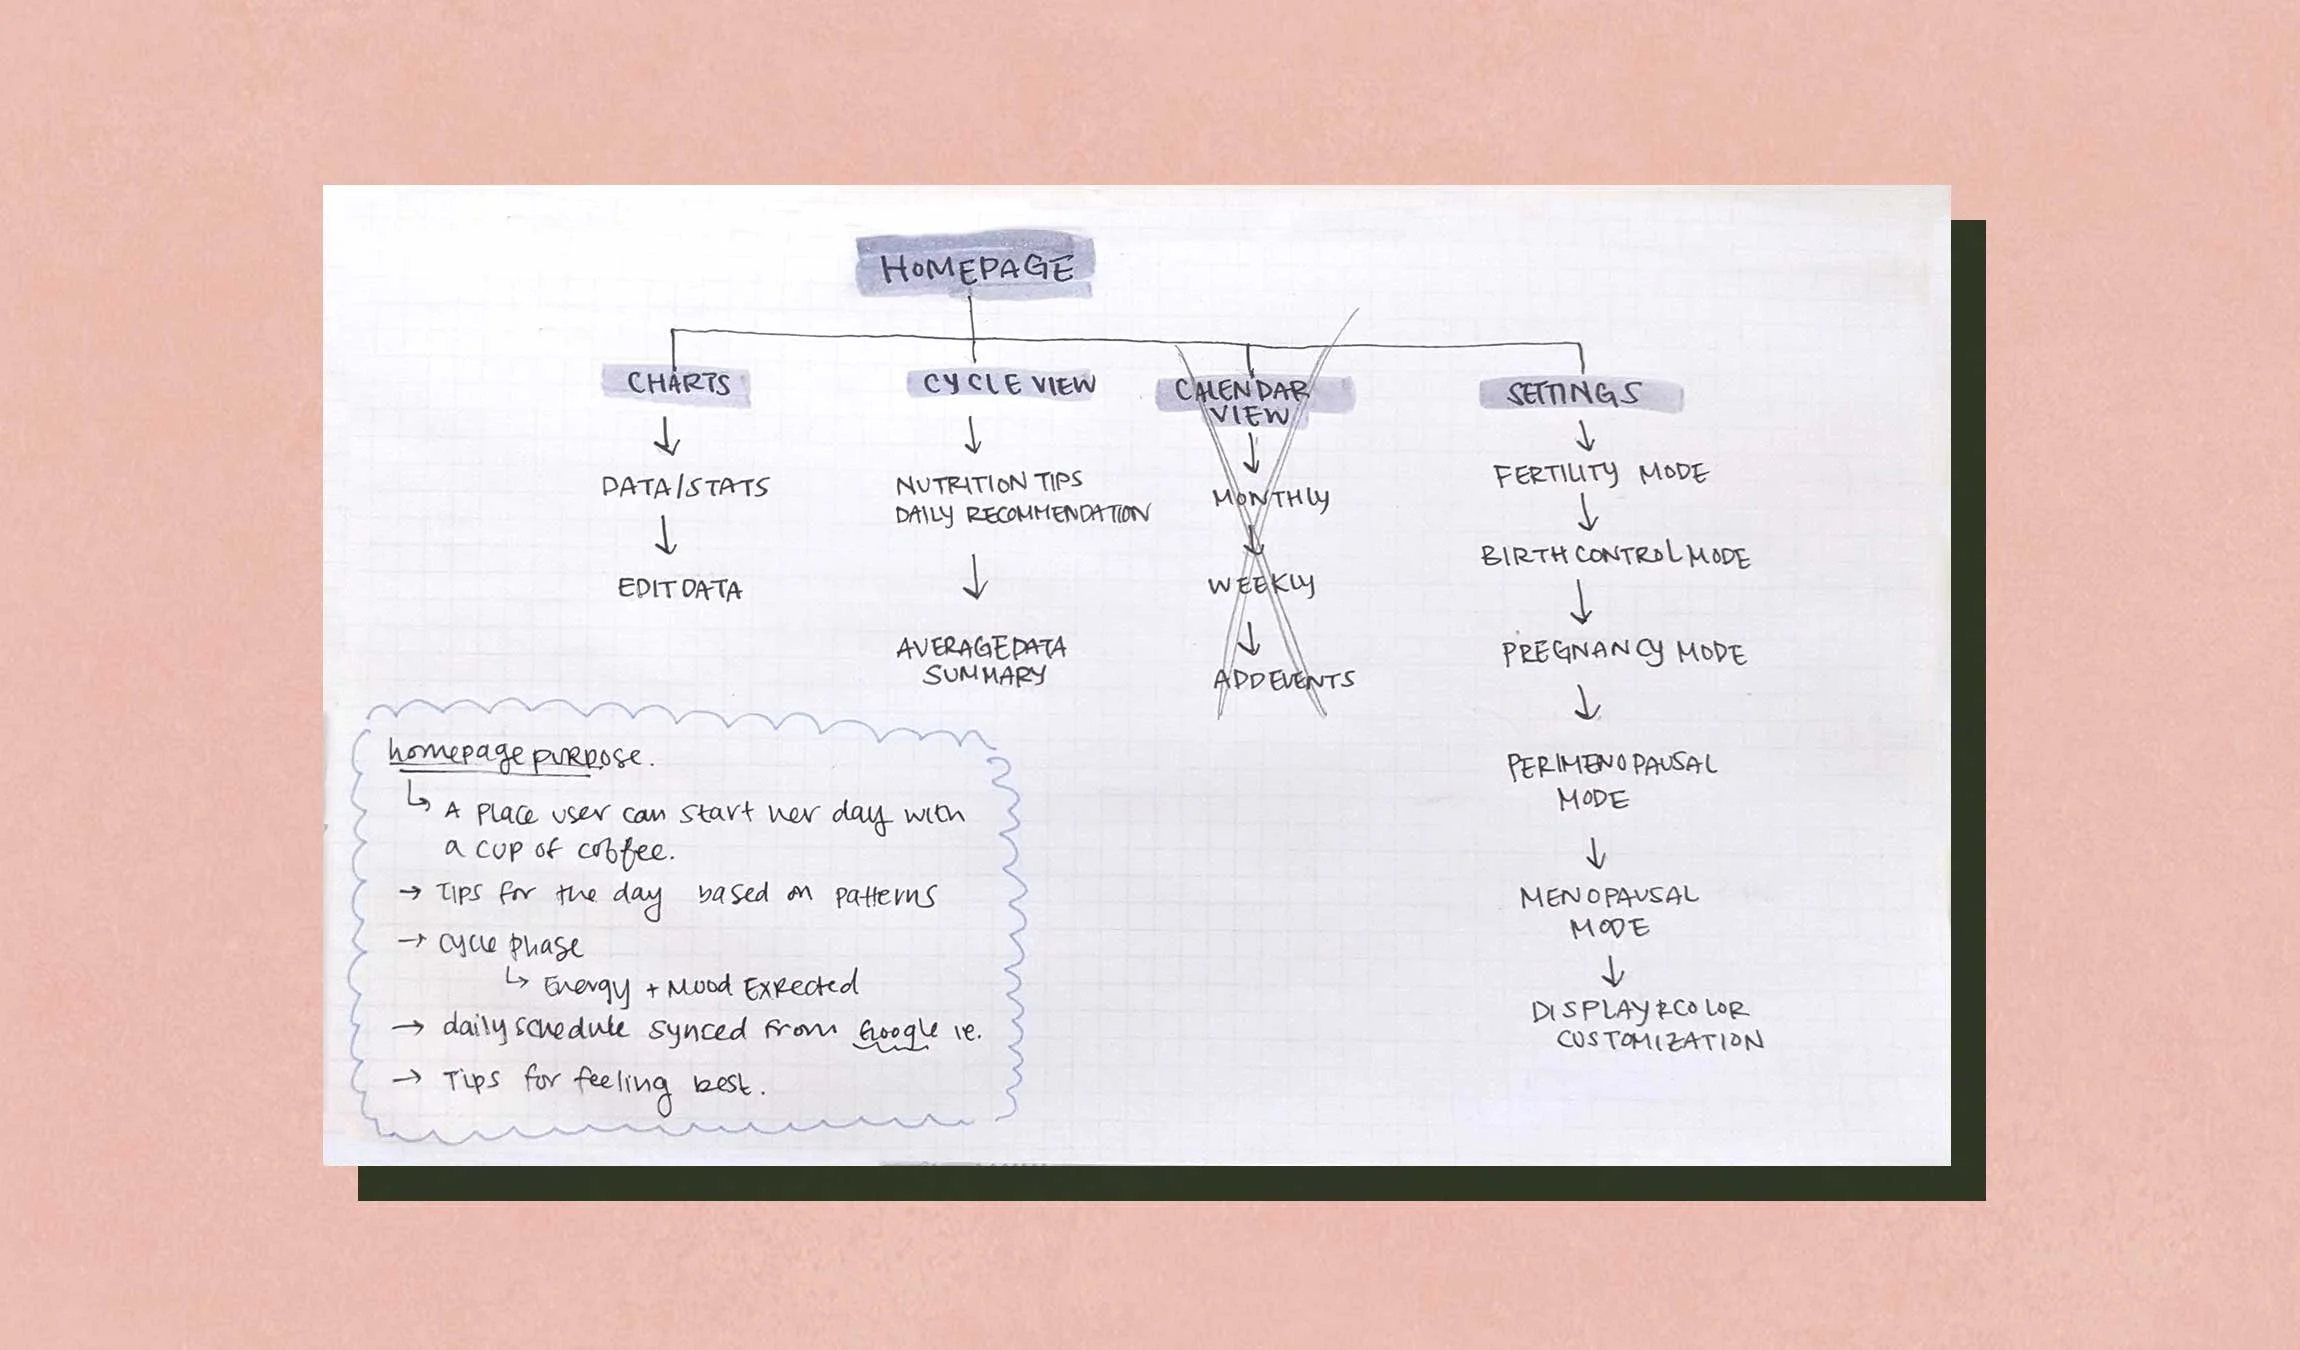 HOMEPAGE
CHARTS
DATA/STATS
EDIT DATA
CYCLE VIEW
NUTRITION TIPS
DAILY RECOMMENDATION
AVERAGE DATA
SUMMARY
CALENDAR
VIEW
MONTHLY
WEEKLY
ADD EVENTS
SETTINGS
FERTILITY MODE
BIRTH CONTROL MODE
PREGNANCY MODE
PERIMENOPAUSAL
MODE
MENOPAUSAL
MODE
DISPLAY & COLOR
CUSTOMIZATION
homepage purpose.
A place user can start her day with
a cup of coffee.
→ Tips for the day based on patterns
→ cycle phase
Energy + Mood Expected
→ daily schedule synced from Google ie.
→ Tips for feeling best.